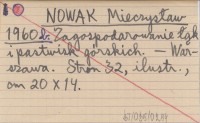 NOWAK Mieczysław
1960 Zagospodarowanie łąk
i pastwisk górskich. — War-
szawa. Stron 32, ilustr.,
cm 20 × 14.